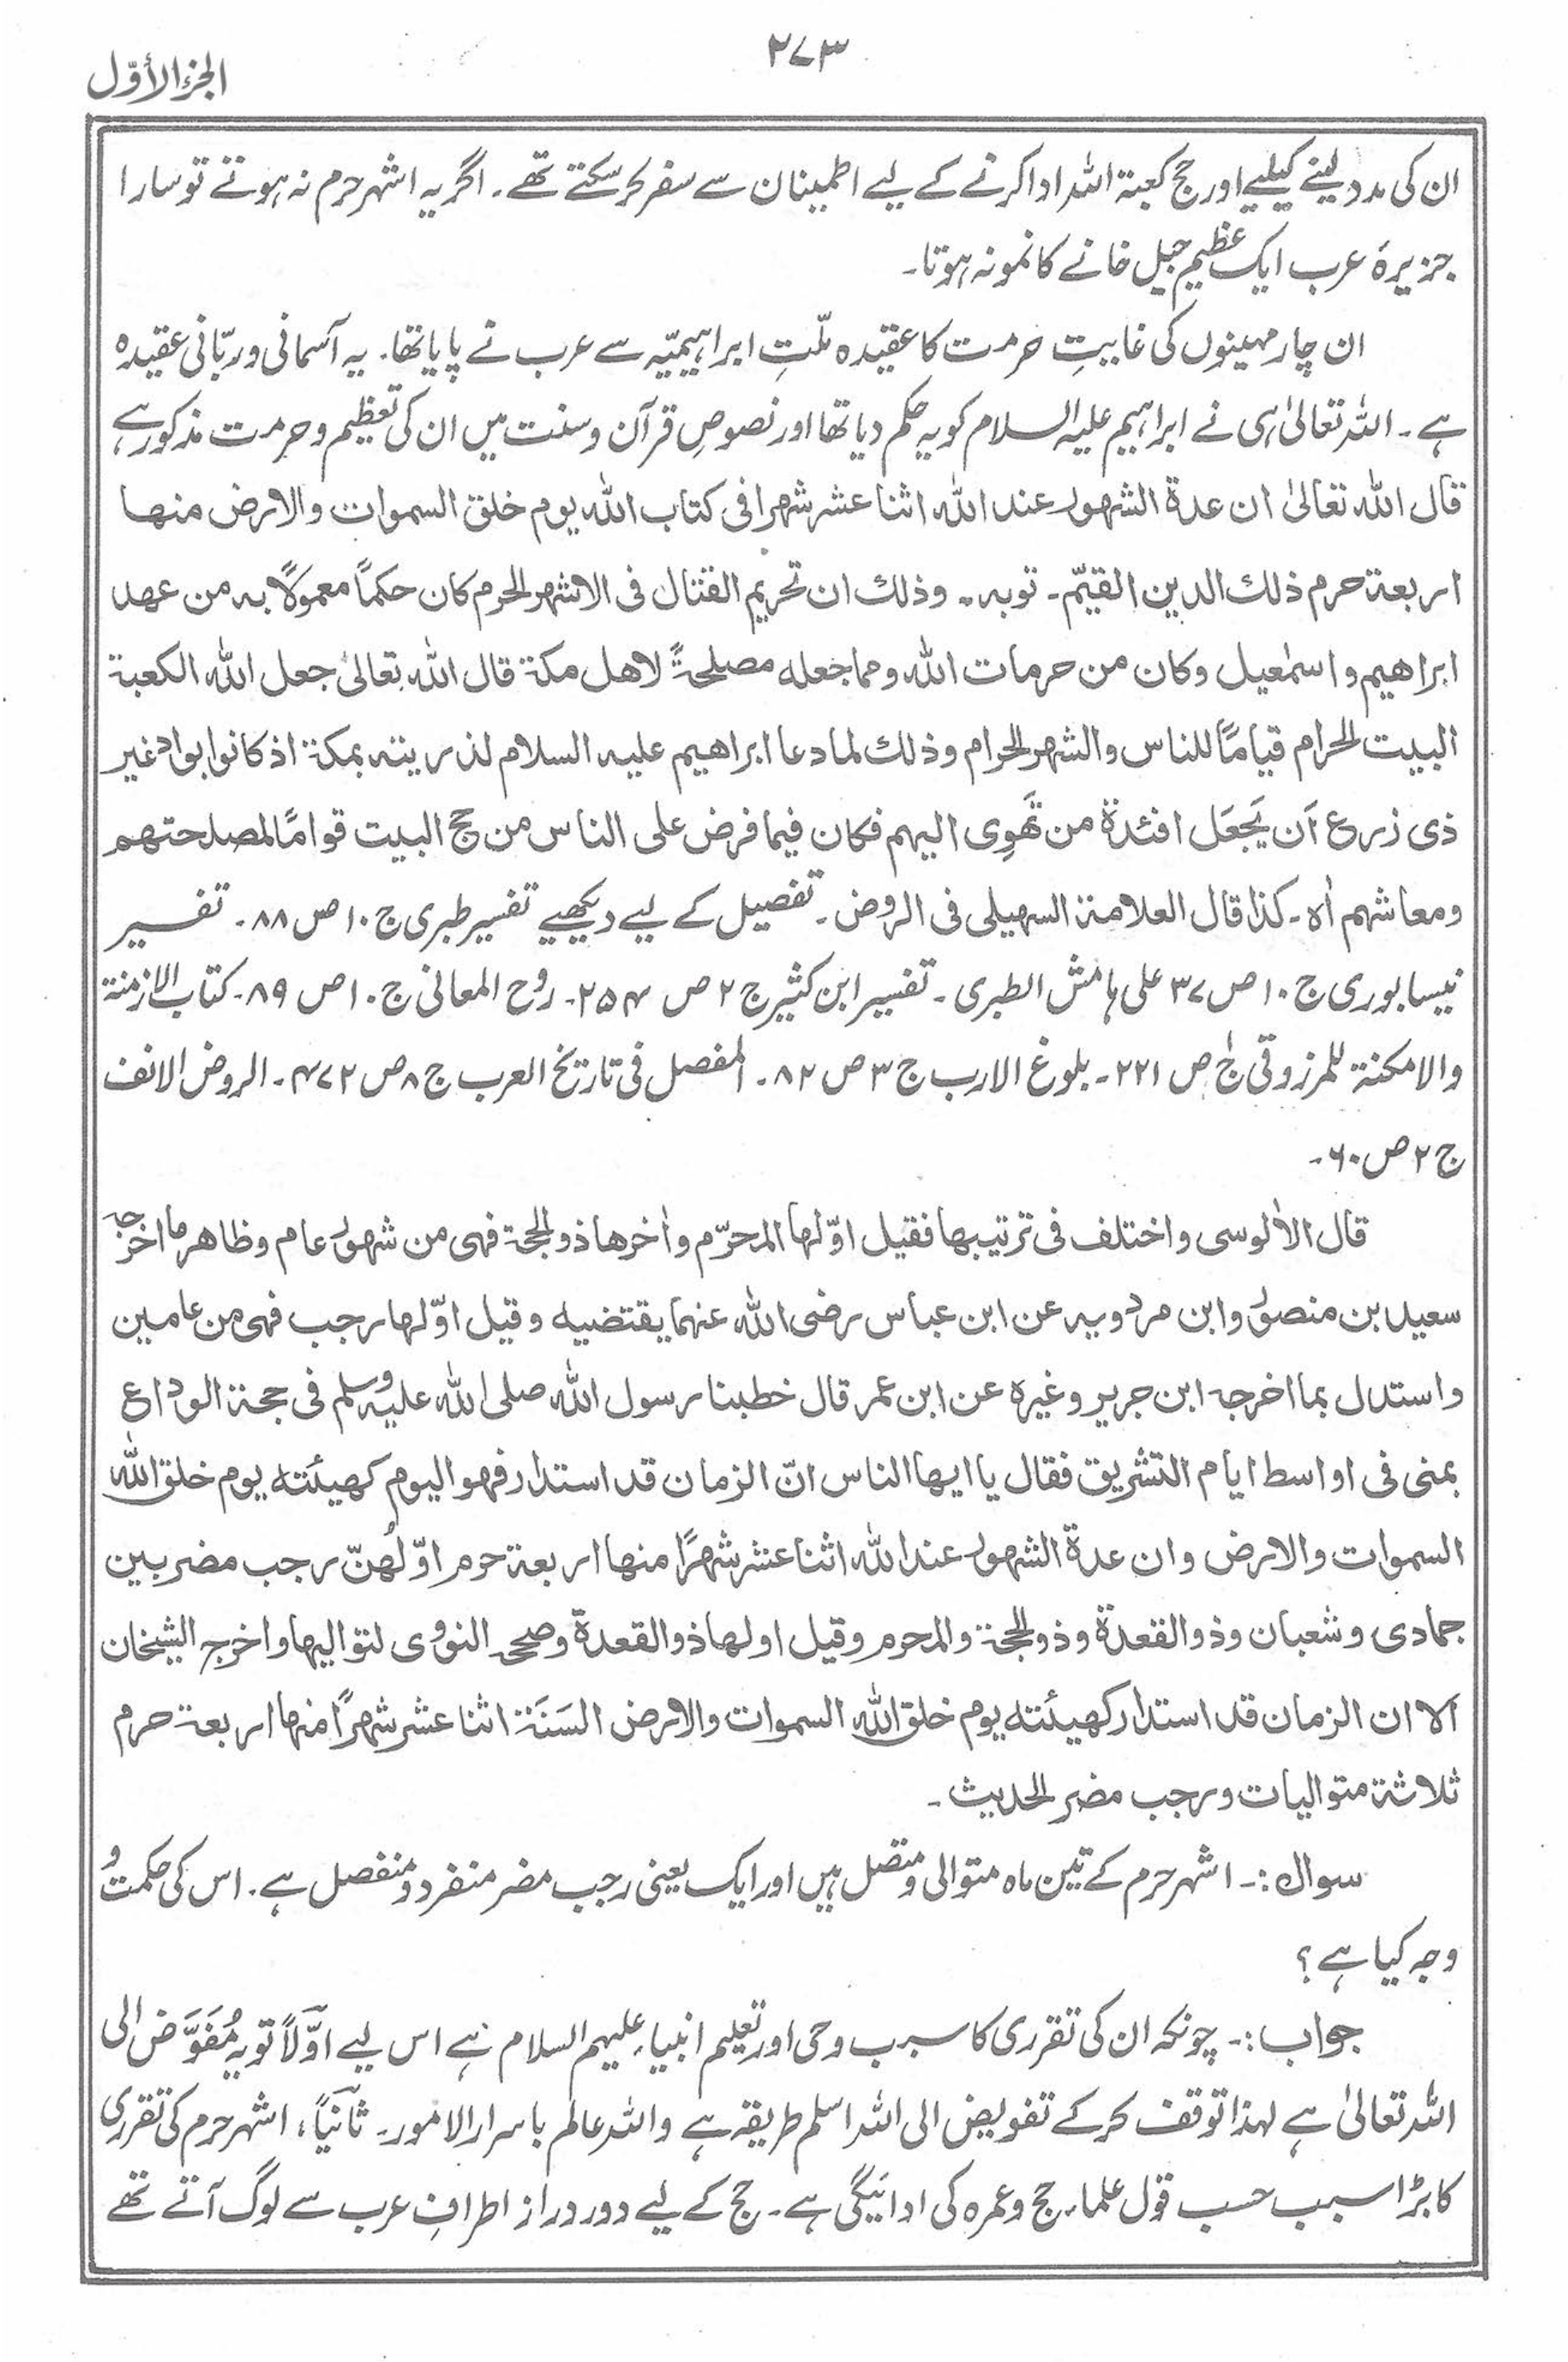 ۲۷۳
الجزء الأوّل
ان کی مدد لینے کیلیے اور حج کعبۃ اللہ ادا کرنے کے لیے اطمینان سے سفر کر سکتے تھے۔ اگر یہ اشہر حرم نہ ہوتے تو سارا
جزیرۂ عرب ایک عظیم جیل خانے کا نمونہ ہوتا۔
ان چار مہینوں کی غایتِ حرمت کا عقیدہ ملّتِ ابراہیمیّہ سے عرب نے پایا تھا۔ یہ آسمانی و ربّانی عقیدہ
ہے۔ اللہ تعالیٰ ہی نے ابراہیم علیہ السلام کو یہ حکم دیا تھا اور نصوصِ قرآن و سنت میں ان کی تعظیم و حرمت مذکور ہے
قال اللہ تعالیٰ ان عدۃ الشہور عند اللہ اثنا عشر شہرا فی کتاب اللہ یوم خلق السموات والارض منہا
اربعۃ حرم ذلك الدین القیّم۔ توبہ۔ وذلك ان تحریم القتال فی الاشہر الحرم کان حکماً معمولًا بہ من عہد
ابراھیم و اسمٰعیل وکان من حرمات اللہ ومما جعلہ مصلحۃً لاھل مکۃ قال اللہ تعالیٰ جعل اللہ الکعبۃ
البیت الحرام قیامًا للناس والشہر الحرام وذلك لما دعا ابراھیم علیہ السلام لذریتہ بمکۃ اذ کانوا بواد غیر
ذی زرع اَن یَجعَل افئدۃ من تَھوِی الیہم فکان فیما فرض علی الناس من حج البیت قوامًا لمصلحتھم
ومعاشہم اٰہ۔ کذا قال العلامۃ السہیلی فی الروض۔ تفصیل کے لیے دیکھیے تفسیر طبری ج ۱۰ ص ۸۸۔ تفسیر
نیسابوری ج ۱۰ ص ۳۷ علی ہامش الطبری۔ تفسیر ابن کثیر ج ۲ ص ۲۵۴۔ روح المعانی ج ۱۰ ص ۸۹۔ کتاب الازمنۃ
والامکنۃ للمرزوقی ج۱ ص ۲۲۱۔ بلوغ الارب ج ۳ ص ۸۲۔ المفصل فی تاریخ العرب ج ۸ ص ۴۷۲۔ الروض الانف
ج ۲ ص ۶۰۔
قال الاٰلوسی واختلف فی ترتیبہا فقیل اوّلہا المحرّم واٰخرھا ذو الحجۃ فہی من شہور عام وظاھر ما اخرجہ
سعید بن منصور وابن مردویہ عن ابن عباس رضی اللہ عنہما یقتضیہ وقیل اوّلہا رجب فہی من عامین
واستدل بما اخرجہ ابن جریر وغیرہ عن ابن عمر قال خطبنا رسول اللہ صلی اللہ علیہ وسلم فی حجۃ الوداع
بمنی فی اواسط ایام التشریق فقال یا ایہا الناس انّ الزمان قد استدار فہو الیوم کہیئتہ یوم خلق اللہ
السموات والارض وان عدۃ الشہور عند اللہ اثنا عشر شہرًا منہا اربعۃ حرم اوّلُھنّ رجب مضر بین
جمادی وشعبان وذو القعدۃ وذو الحجۃ والمحرم وقیل اولہا ذو القعدۃ وصححہ النووی لتوالیہا واخرج الشیخان
اَلا ان الزمان قد استدار کہیئتہ یوم خلق اللہ السموات والارض السَنَۃ اثنا عشر شہرًا منہا اربعۃ حرم
ثلاثۃ متوالیات ورجب مضر الحدیث۔
سوال:۔ اشہر حرم کے تین ماہ متوالی و متصل ہیں اور ایک یعنی رجب مضر منفرد و منفصل ہے۔ اس کی حکمت و
وجہ کیا ہے؟
جواب:۔ چونکہ ان کی تقرری کا سبب وحی اور تعلیم انبیاء علیہم السلام ہے اس لیے اوّلاً تو یہ مُفَوَّض الی
اللہ تعالیٰ ہے لہذا توقف کرکے تفویض الی اللہ اسلم طریقہ ہے واللہ عالم باسرار الامور۔ ثانیاً، اشہر حرم کی تقرری
کا بڑا سبب حسب قول علماء حج و عمرہ کی ادائیگی ہے۔ حج کے لیے دور دراز اطرافِ عرب سے لوگ آتے تھے